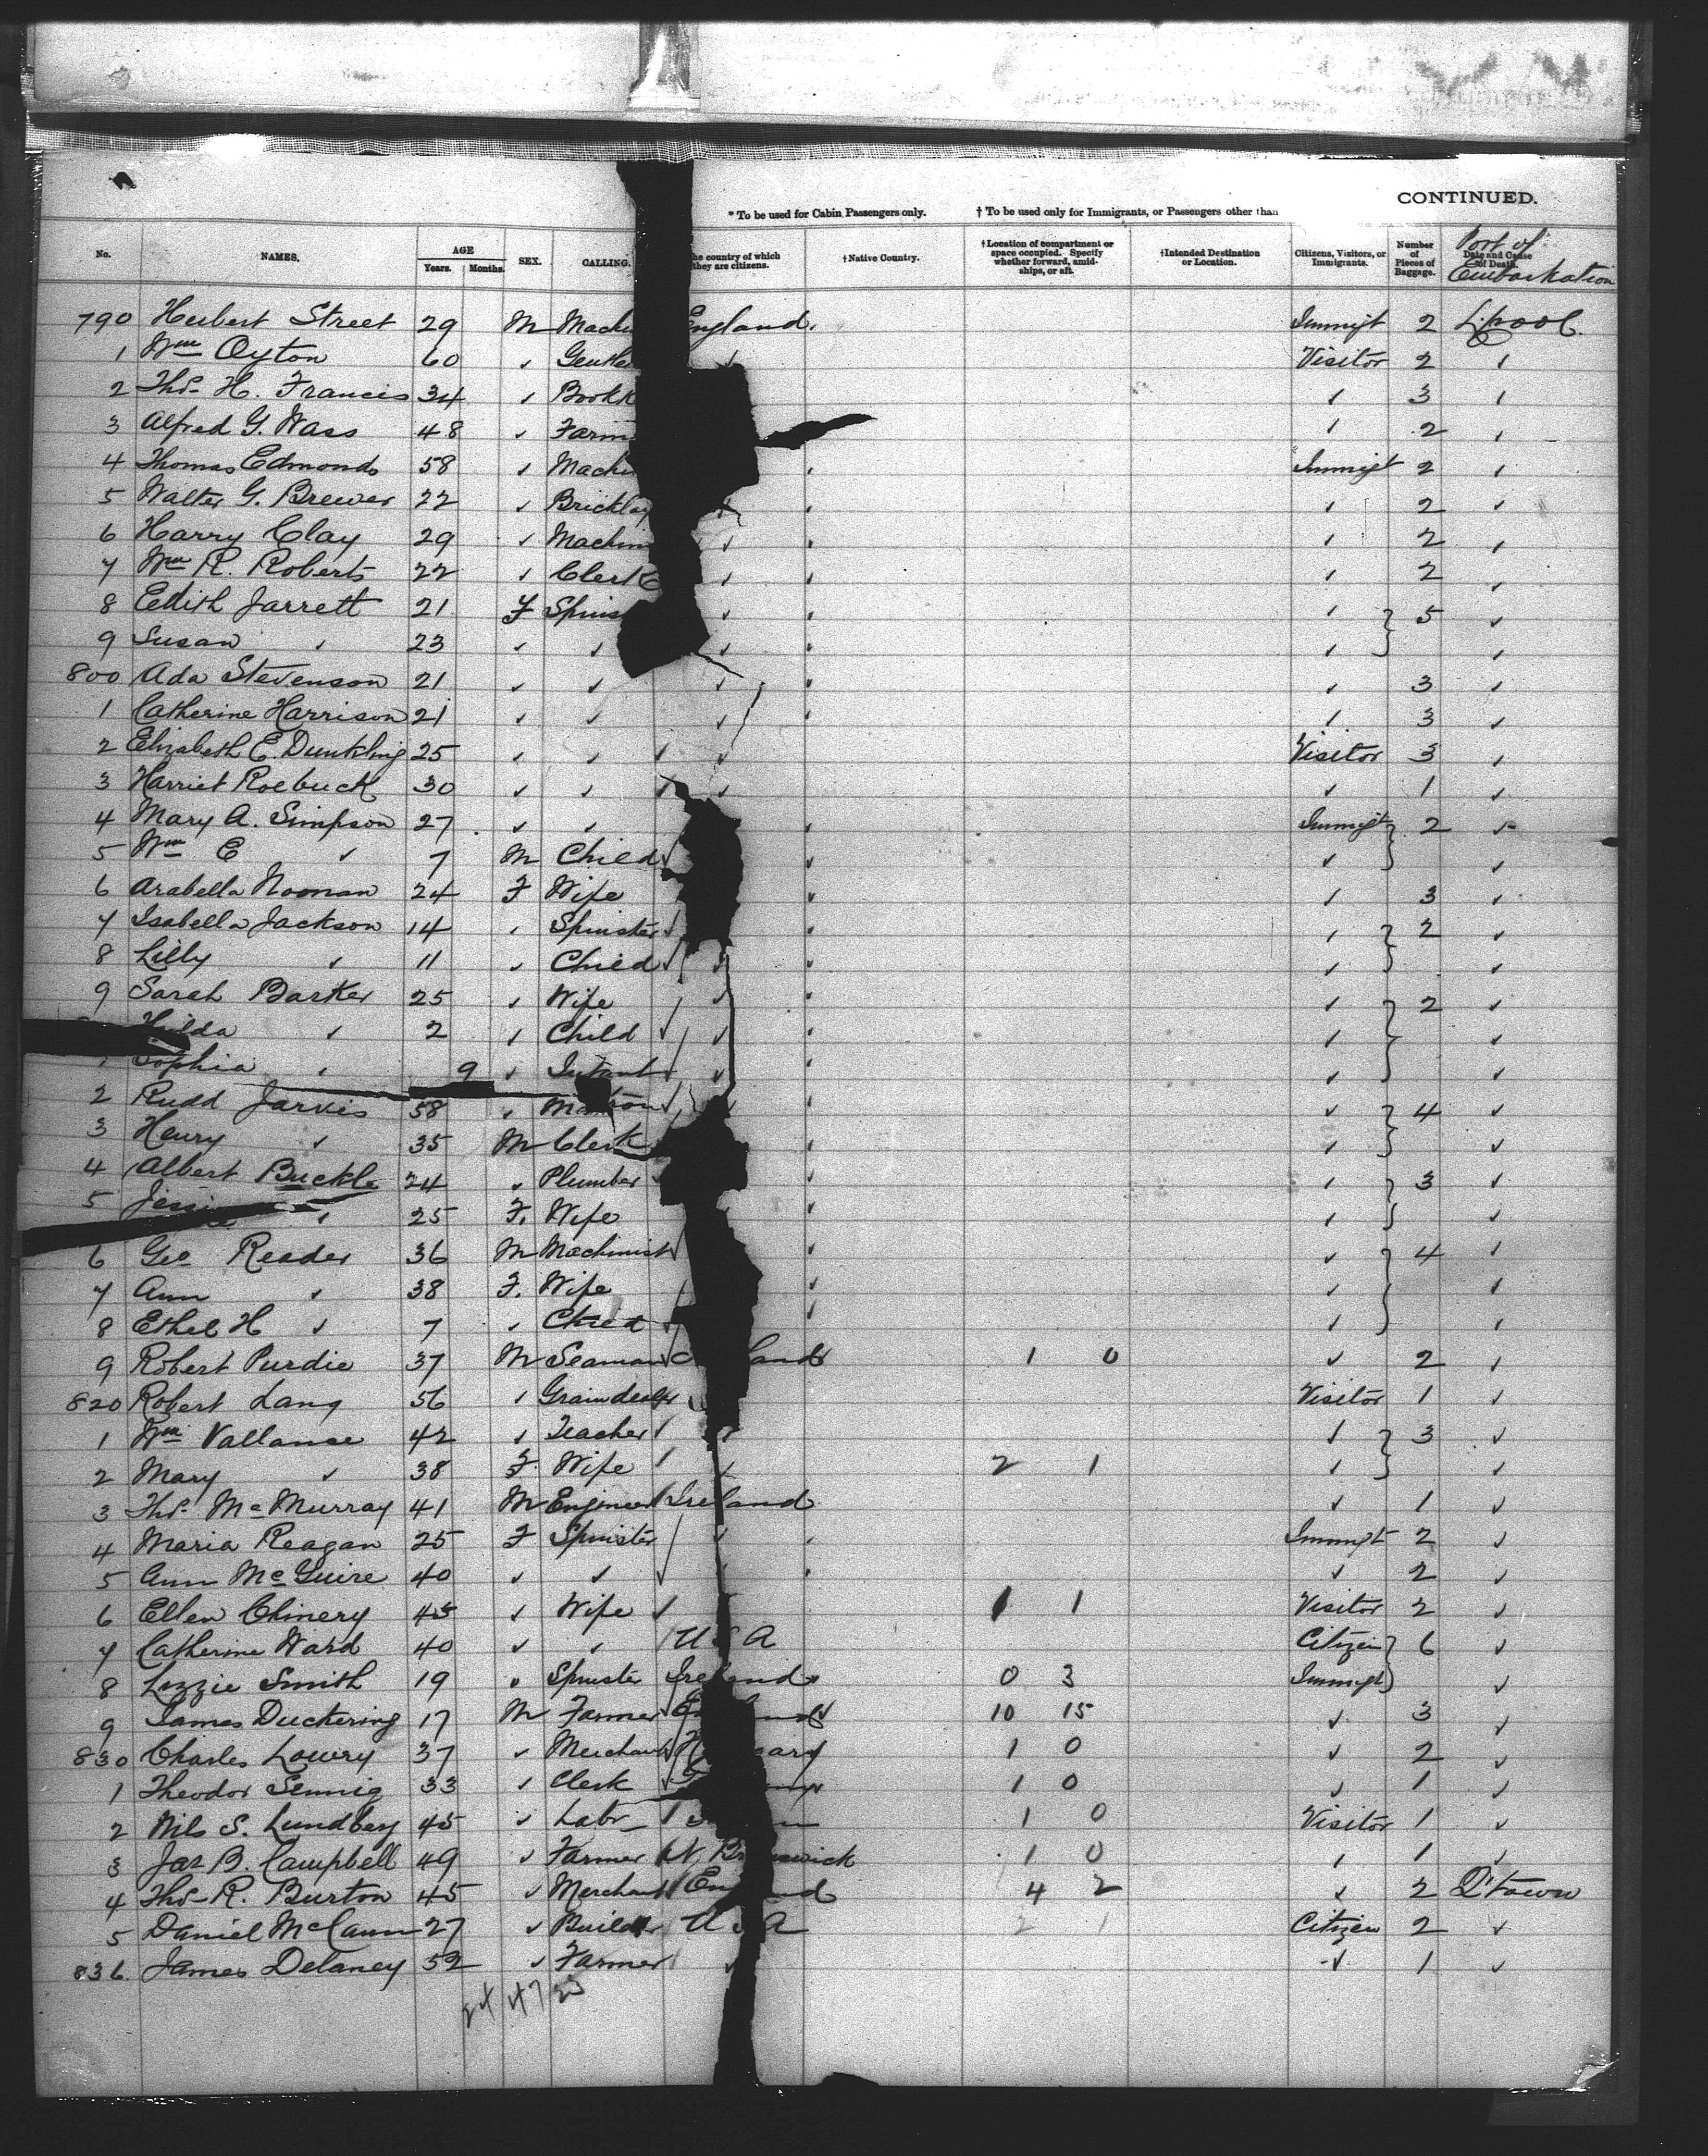 CONTINUED.
* To be used for Cabin Passengers only. † To be used only for Immigrants, or Passengers other than
No. NAMES. AGE Years. Months. SEX. CALLING. he country of which they are citizens. †Native Country. †Location of compartment or space occupied. Specify whether forward, amidships, or aft. †Intended Destination or Location. Citizens, Visitors, or Immigrants. Number of Pieces of Baggage. Date and Cause of Death. Port of Embarkation
790 Herbert Street 29 M Machi England. Immigt 2 L'pool.
1 Wm Oyton 60 ✓ Gentle ✓ Visitor 2 ✓
2 Thos. H. Francis 34 ✓ Bookk ✓ 3 ✓
3 Alfred G. Wass 48 ✓ Farm ✓ 2 ✓
4 Thomas Edmonds 58 ✓ Machi Immigt 2 ✓
5 Walter G. Brewer 22 ✓ Bricklay ✓ ✓ 2 ✓
6 Harry Clay 29 ✓ Machin ✓ ✓ 2 ✓
7 Wm R. Roberts 22 ✓ Clerk ✓ ✓ 2 ✓
8 Edith Jarrett 21 F Spins ✓ ✓ 5 ✓
9 Susan ✓ 23 ✓ ✓ ✓ ✓ ✓
800 Ada Stevenson 21 ✓ ✓ ✓ ✓ 3 ✓
1 Catherine Harrison 21 ✓ ✓ ✓ ✓ 3 ✓
2 Elizabeth E. Dunkling 25 ✓ ✓ ✓ Visitor 3 ✓
3 Harriet Roebuck 30 ✓ ✓ ✓ ✓ 1 ✓
4 Mary A. Simpson 27 ✓ ✓ Immigt 2 ✓
5 Wm E ✓ 7 M Child ✓ ✓
6 Arabella Nooman 24 F Wife ✓ 3 ✓
7 Isabella Jackson 14 ✓ Spinster ✓ 2 ✓
8 Lilly ✓ 11 ✓ Child ✓ ✓ ✓
9 Sarah Barker 25 ✓ Wife ✓ ✓ 2 ✓
Hilda ✓ 2 ✓ Child ✓ ✓ ✓
1 Sophia ✓ 9 ✓ Infant ✓ ✓ ✓
2 Rudd Jarvis 58 ✓ Matron ✓ ✓ 4 ✓
3 Henry ✓ 35 M Clerk ✓ ✓
4 Albert Buckle 24 ✓ Plumber ✓ 3 ✓
5 Jessie ✓ 25 F. Wife ✓ ✓
6 Geo Reader 36 M Machinist ✓ 4 ✓
7 Ann ✓ 38 F. Wife ✓ ✓
8 Ethel H ✓ 7 ✓ Child ✓ ✓
9 Robert Purdie 37 M Seaman land 1 0 ✓ 2 ✓
820 Robert Lang 56 ✓ Graindealer Visitor 1 ✓
1 Wm Vallance 42 ✓ Teacher ✓ 3 ✓
2 Mary ✓ 38 F. Wife ✓ 2 1 ✓ ✓
3 Thos. McMurray 41 M Engineer Ireland ✓ 1 ✓
4 Maria Reagan 25 F Spinster ✓ Immigt 2 ✓
5 Ann McGuire 40 ✓ ✓ ✓ ✓ 2 ✓
6 Ellen Chinery 45 ✓ Wife 1 1 Visitor 2 ✓
7 Catherine Ward 40 ✓ ✓ U S A Citizen 6 ✓
8 Lizzie Smith 19 ✓ Spinster Ireland 0 3 Immigt ✓
9 James Duckering 17 M Farmer 10 15 ✓ 3 ✓
830 Charles Lowry 37 ✓ Merchant H gary 1 0 ✓ 2 ✓
1 Theodor Sennig 33 ✓ Clerk 1 0 ✓ 1 ✓
2 Nils S. Lundberg 45 ✓ Labr 1 0 Visitor 1 ✓
3 Jas B. Campbell 49 ✓ Farmer N. Br swick 1 0 ✓ 1 ✓
4 Thos. R. Burton 45 ✓ Merchant En nd 4 2 ✓ 2 Q'town
5 Daniel McCann 27 ✓ Builder U S A 2 1 Citizen 2 ✓
836. James Delaney 52 ✓ Farmer ✓ ✓ 1 ✓
24 47 23